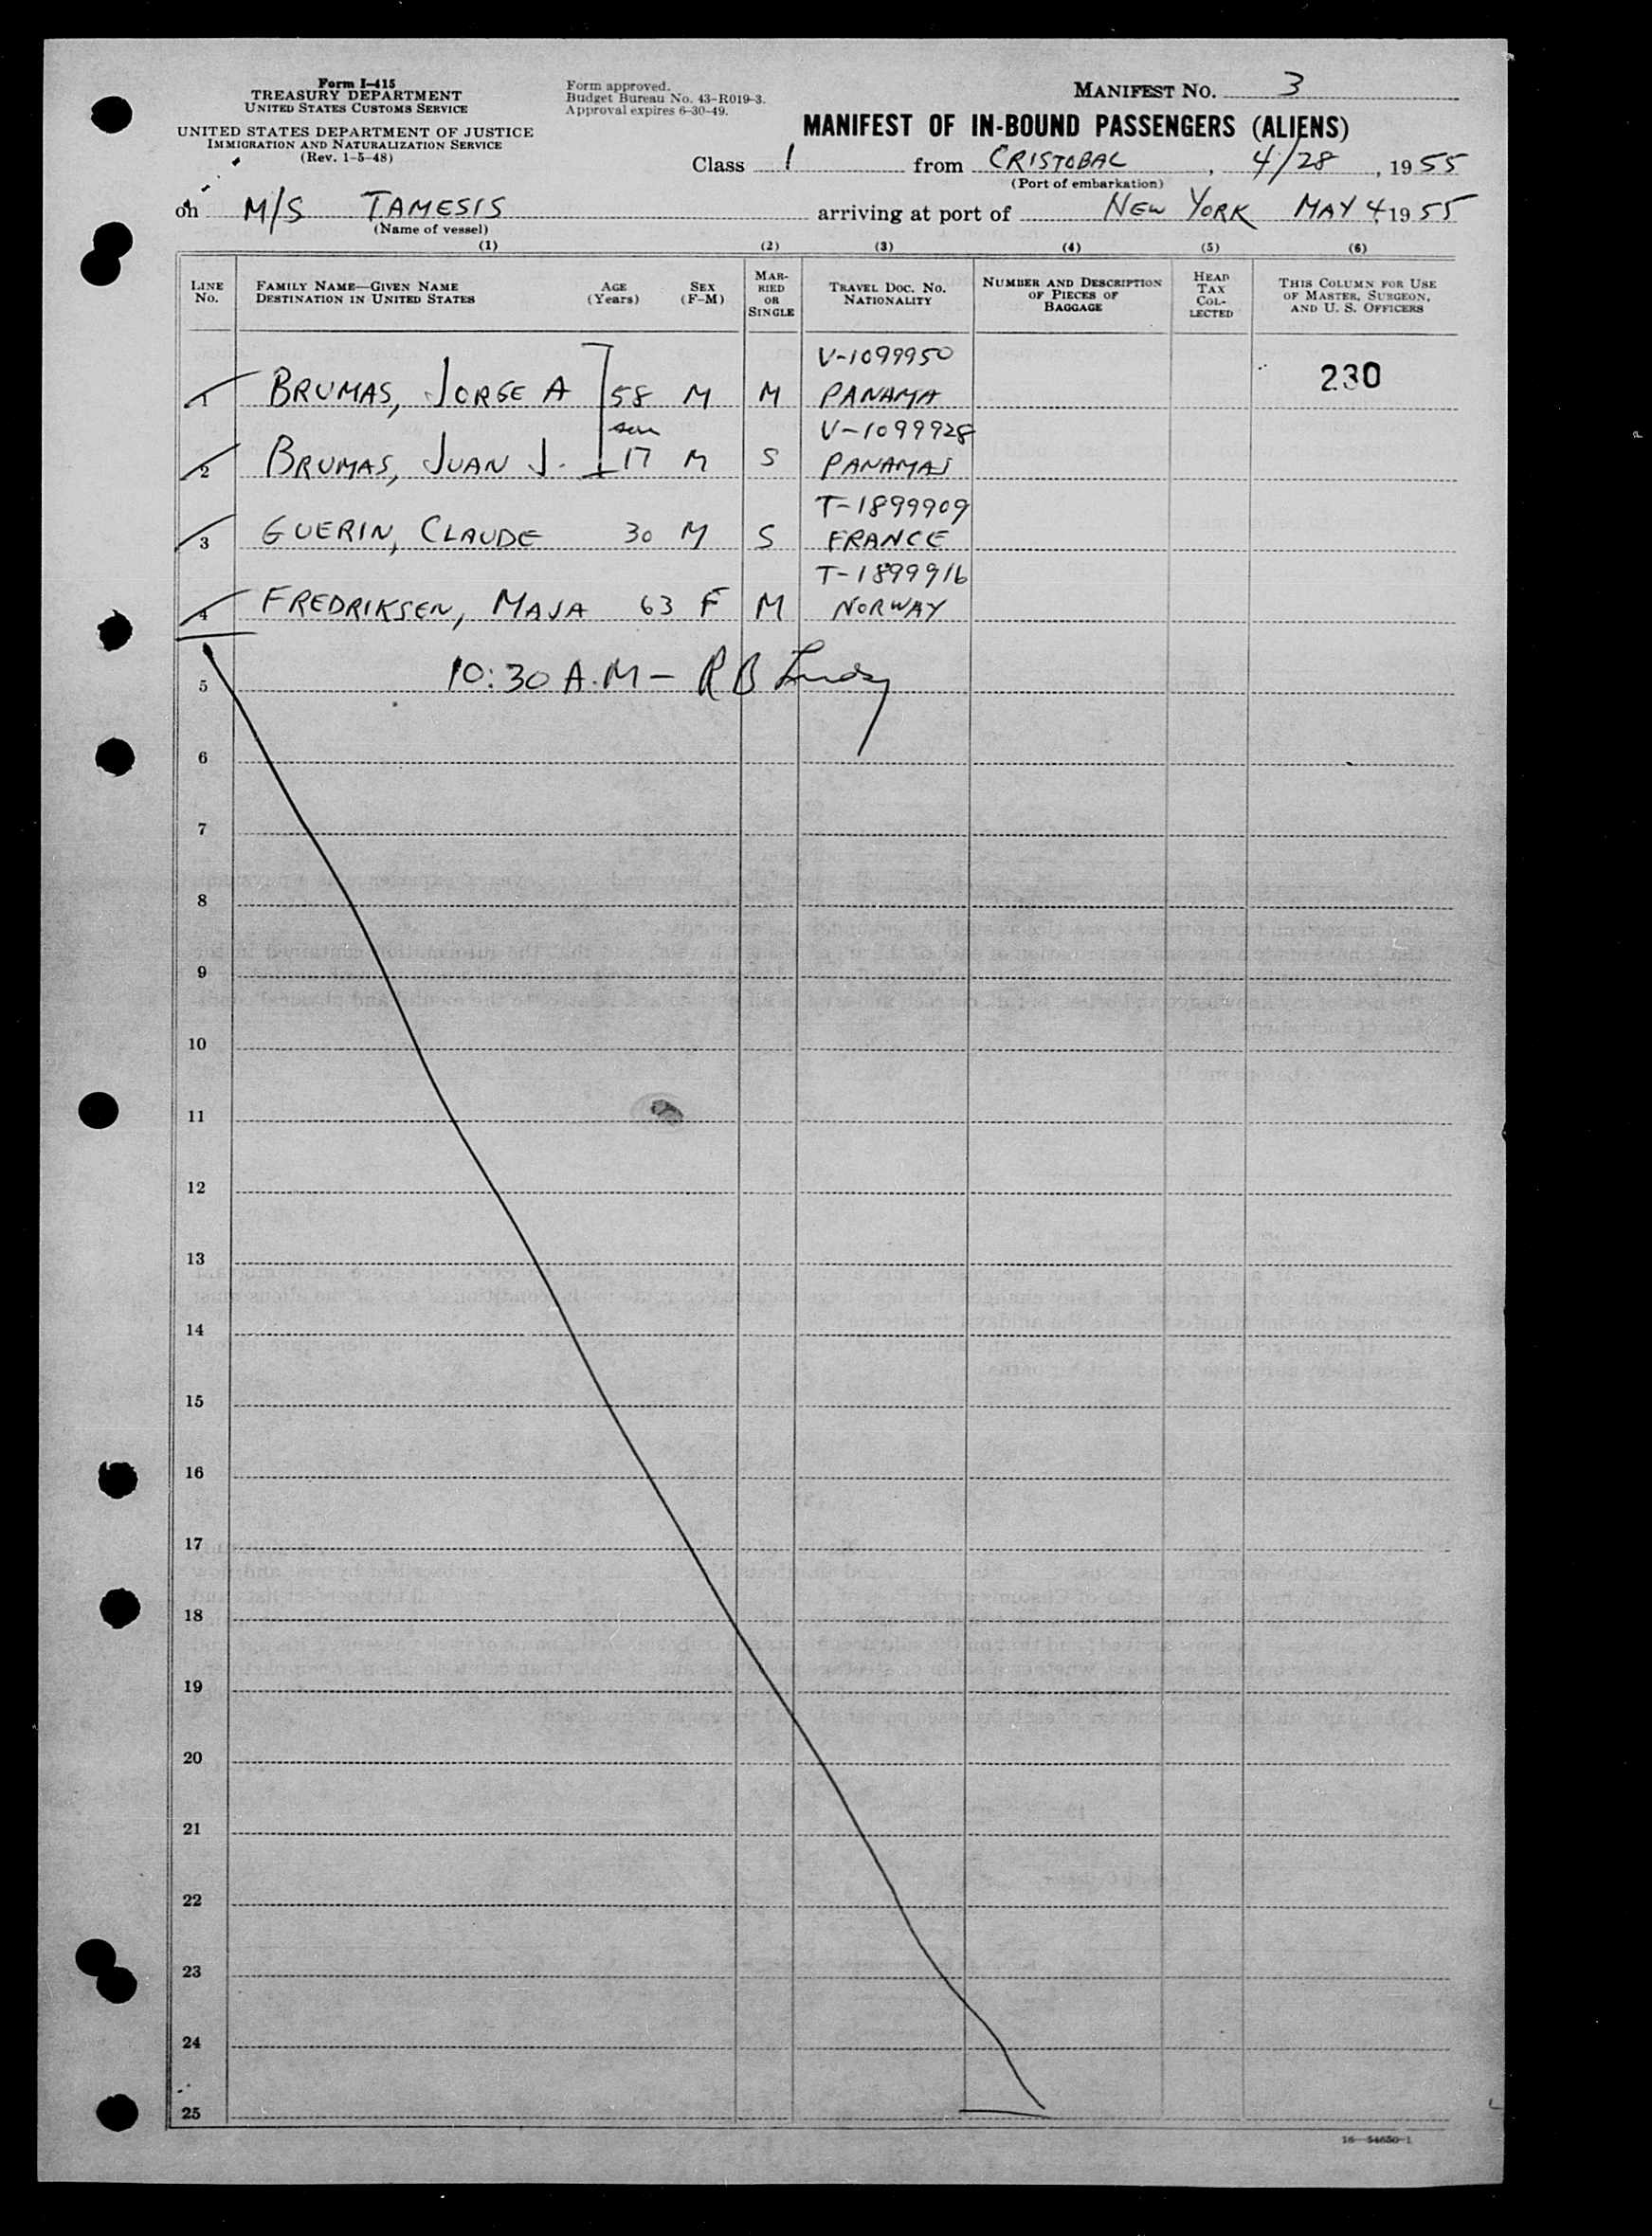 Form I-415
TREASURY DEPARTMENT
UNITED STATES CUSTOMS SERVICE
UNITED STATES DEPARTMENT OF JUSTICE
IMMIGRATION AND NATURALIZATION SERVICE
(Rev. 1-5-48)
Form approved.
Budget Bureau No. 43-R019-3.
Approval expires 6-30-49.
MANIFEST NO. 3
MANIFEST OF IN-BOUND PASSENGERS (ALIENS)
Class 1 from CRISTOBAL, 4/28, 1955
(Port of embarkation)
on M/S TAMESIS arriving at port of NEW YORK MAY 4, 1955
(Name of vessel)
(1) (2) (3) (4) (5) (6)
LINE No.
FAMILY NAME—GIVEN NAME
DESTINATION IN UNITED STATES
AGE (Years)
SEX (F-M)
MARRIED OR SINGLE
TRAVEL DOC. NO. NATIONALITY
NUMBER AND DESCRIPTION OF PIECES OF BAGGAGE
HEAD TAX COLLECTED
THIS COLUMN FOR USE OF MASTER, SURGEON, AND U. S. OFFICERS
V-1099950
1 BRUMAS, JORGE A 58 M M PANAMA 230
son V-1099928
2 BRUMAS, JUAN J. 17 M S PANAMA
T-1899909
3 GUERIN, CLAUDE 30 M S FRANCE
T-1899916
4 FREDRIKSEN, MAJA 63 F M NORWAY
5 10:30 A.M — R B
6
7
8
9
10
11
12
13
14
15
16
17
18
19
20
21
22
23
24
25